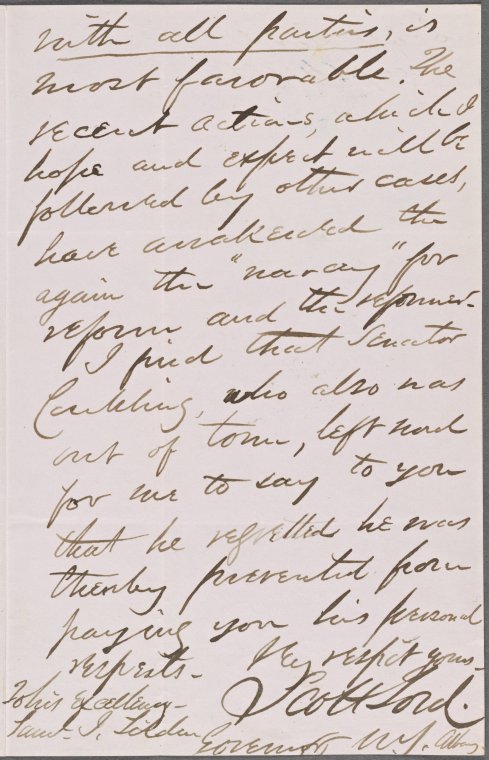 with all parties, is
most favorable. The
recent actions, which I
hope and expect will be
followed by other cases,
have awakened the
again the " " for
reform and the reformer.
I find that Senator
Conkling, who also was
out of town, left word
for me to say to you
that he regretted he was
thereby prevented from
paying you his personal
respects.
Very respct yours
Scott Lord.
To his Excellency
Saml. J. Tilden
Governor N.Y. Albany